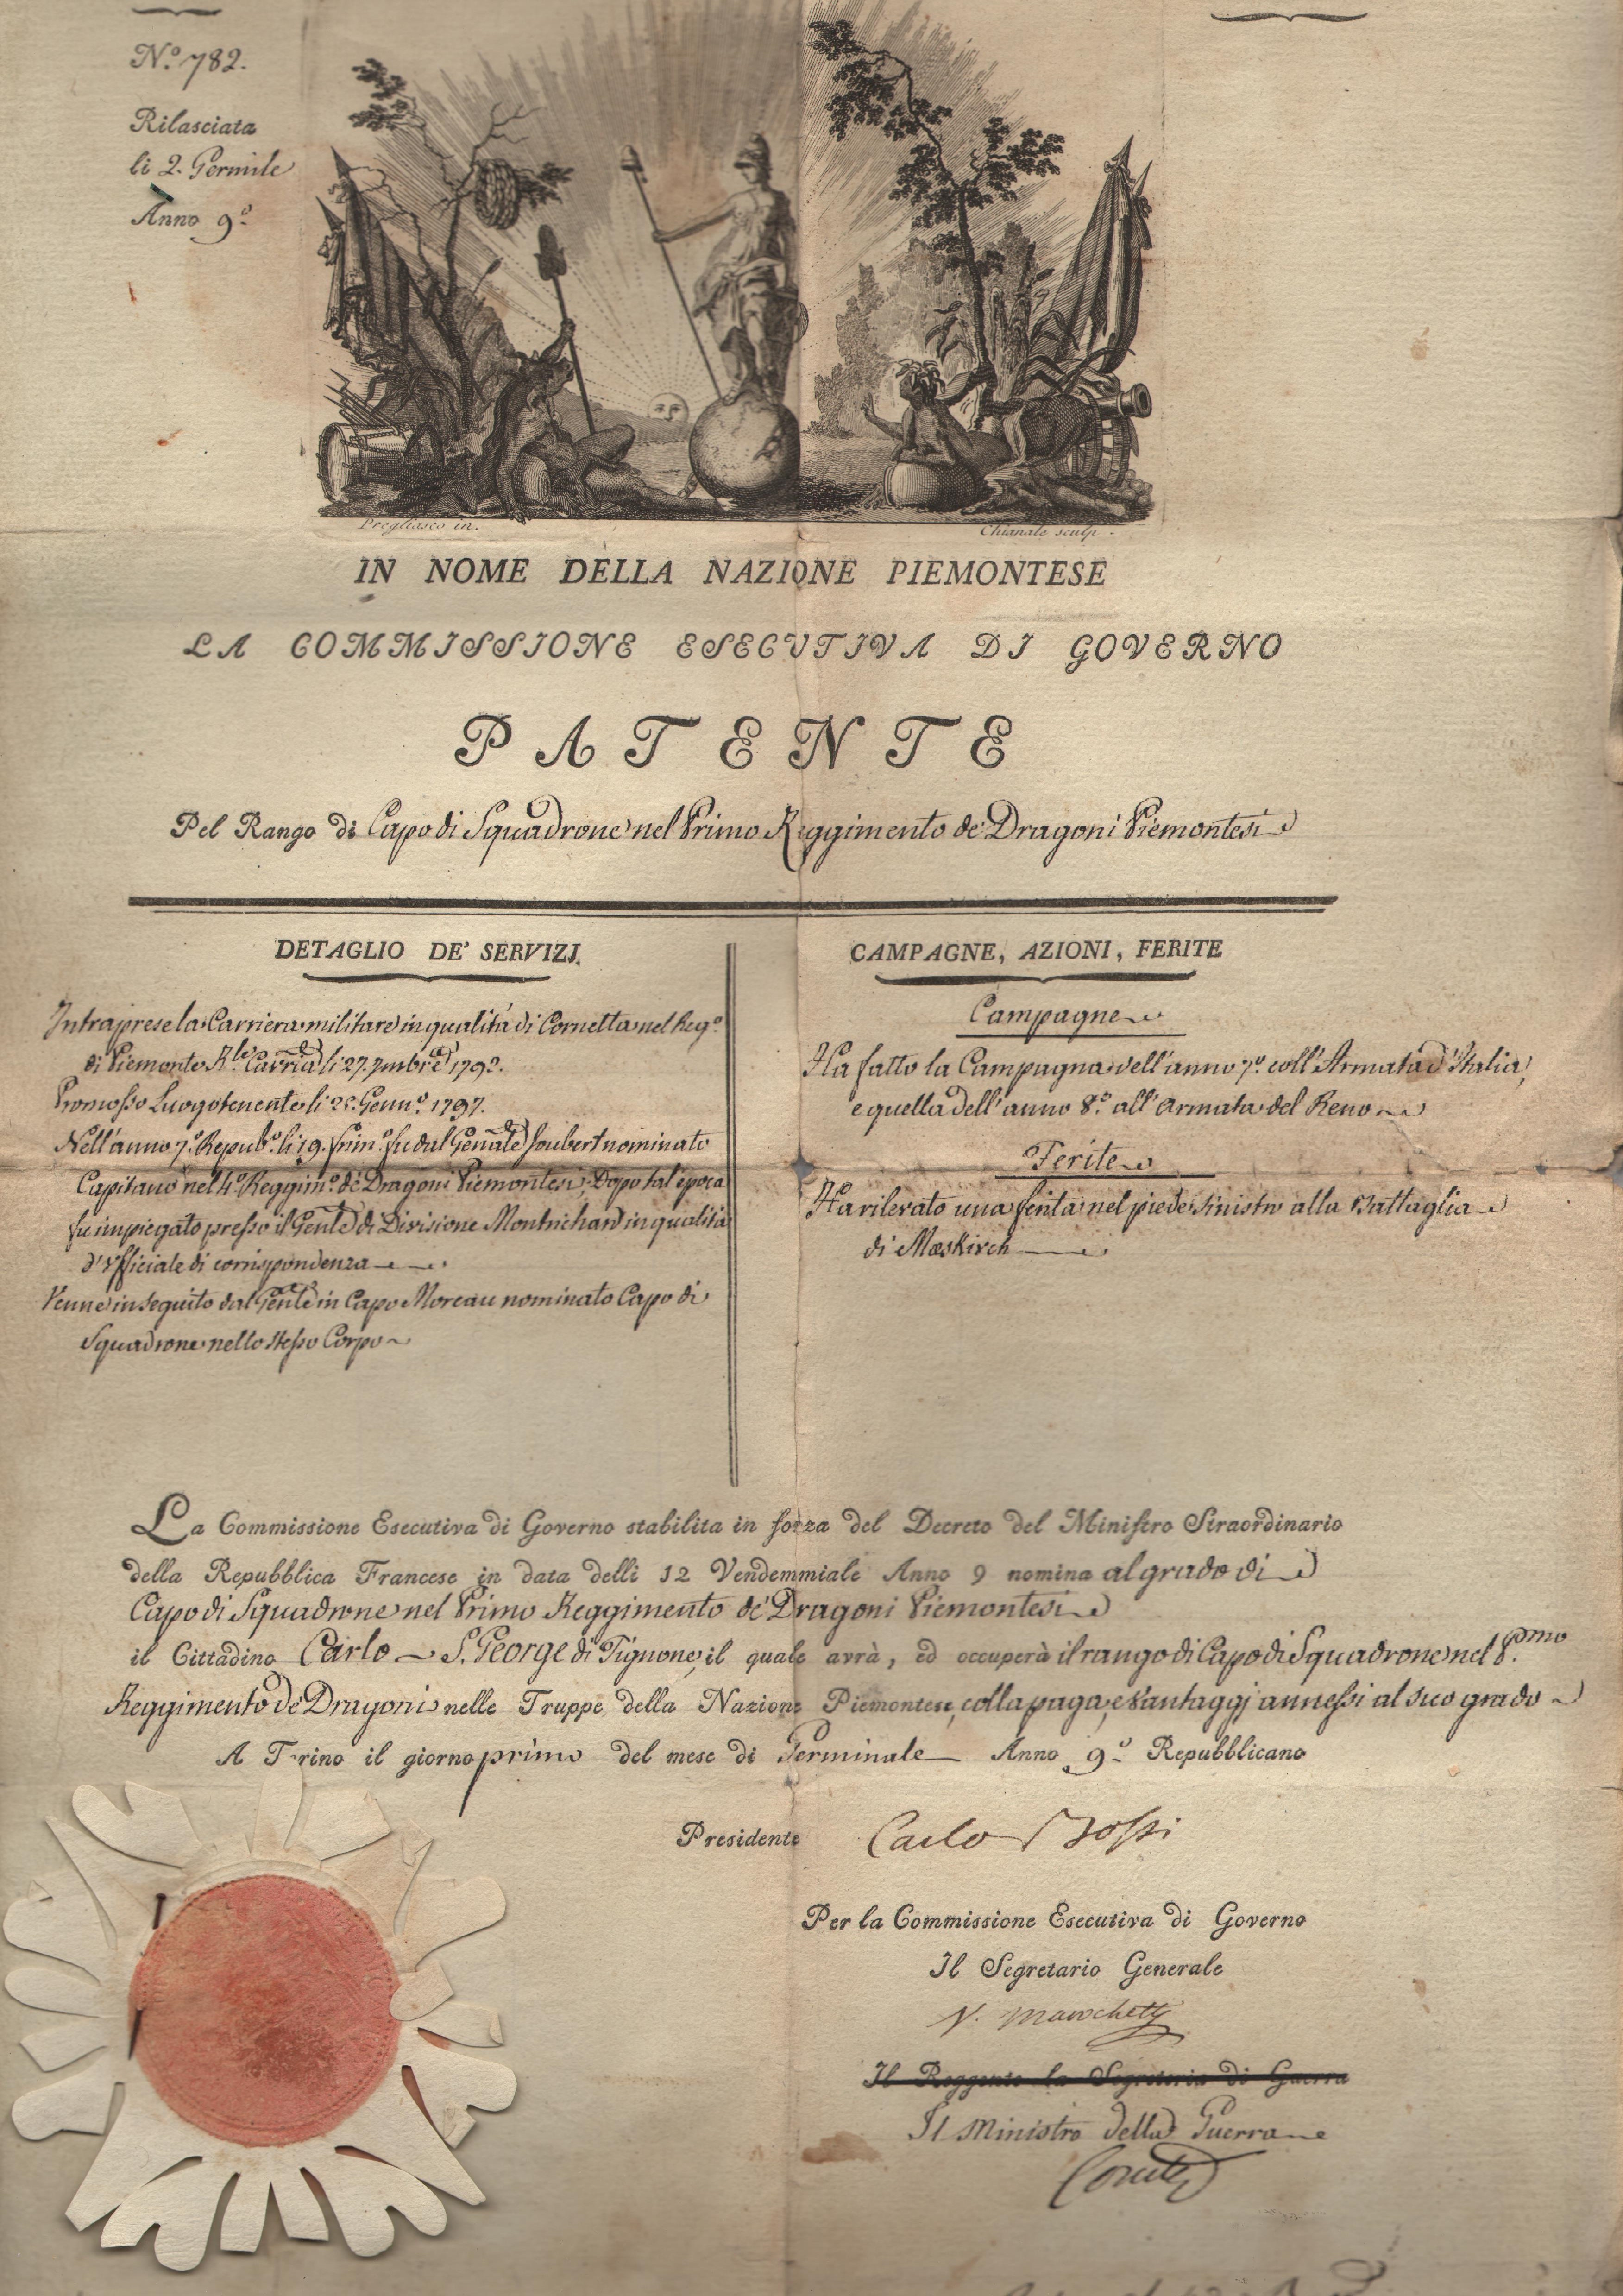 N.º 782.
Rilasciata
li 2. Germile
Anno 9.º
Pregliasco in.
Chianale sculp.
IN NOME DELLA NAZIONE PIEMONTESE
LA COMMISSIONE ESECUTIVA DI GOVERNO
PATENTE
Pel Rango di Capo di Squadrone nel Primo Reggimento de' Dragoni Piemontesi
DETAGLIO DE' SERVIZI
Intraprese la Carriera militare in qualità di Cornetta nel Reg.º
di Piemonte R.le Cavria li 27. 7mbre 1792.
Promosso Luogotenente li Genn.º 1797.
Nell'anno 7.º Repub.º li 19. frim.º fu dal Genale Joubert nominato
Capitano nel 4.º Reggim.º de' Dragoni Piemontesi; Dopo tal'epoca
fu impiegato presso il Genle di Divisione Montrichard in qualità
d'Ufficiale di corrispondenza
Venne in seguito dal Genle in Capo Moreau nominato Capo di
Squadrone nello stesso Corpo
CAMPAGNE, AZIONI, FERITE
Campagne
Ha fatto la Campagna dell'anno 7.º coll'Armata d'Italia,
e quella dell'anno 8.º all'Armata del Reno
Ferite
Ha rilevato una ferita nel piede sinistro alla Battaglia
di Mœskirch
La Commissione Esecutiva di Governo stabilita in forza del Decreto del Ministro Straordinario
della Repubblica Francese in data delli 12 Vendemmiale Anno 9 nomina al grado di
Capo di Squadrone nel Primo Reggimento de' Dragoni Piemontesi
il Cittadino Carlo S. George di Tignone, il quale avrà, ed occuperà il rango di Capo di Squadrone nel P.mo
Reggimento de' Dragoni nelle Truppe della Nazione Piemontese, colla paga, e vantaggj annessi al suo grado
A Torino il giorno primo del mese di Germinale Anno 9.º Repubblicano
Presidente Carlo Bossi
Per la Commissione Esecutiva di Governo
Il Segretario Generale
Il Reggente la Segreteria di Guerra
Il Ministro della Guerra